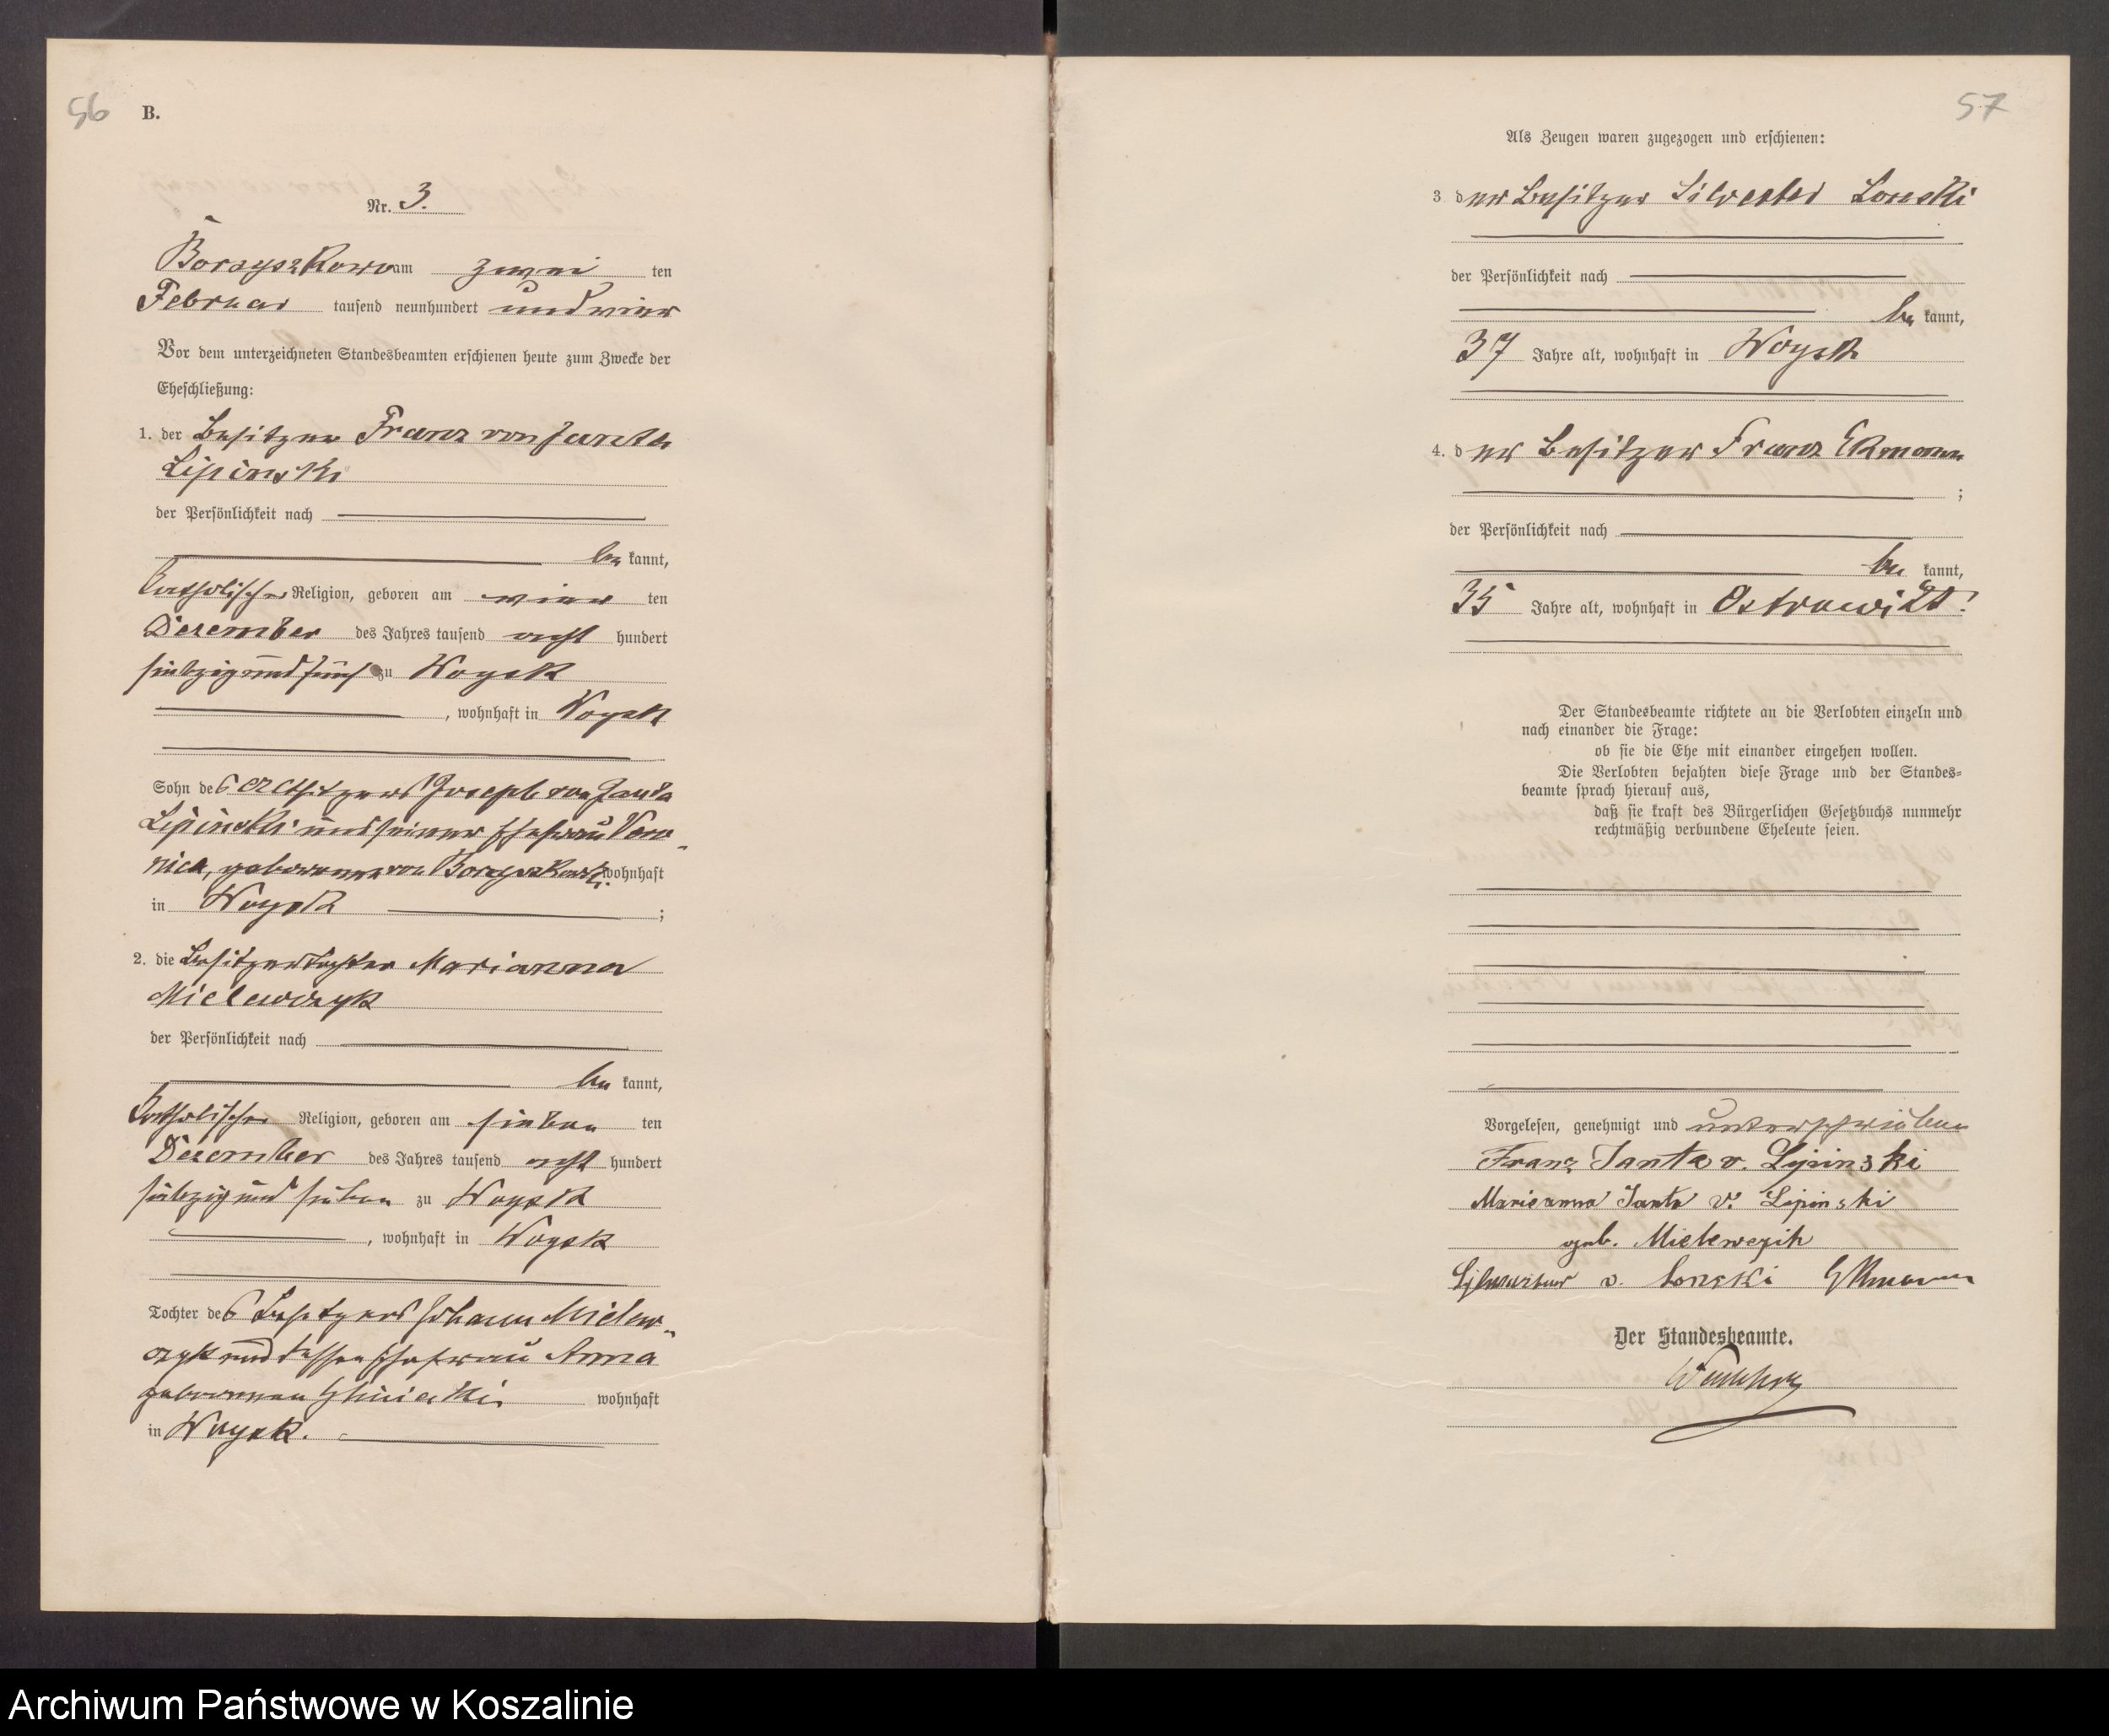 56 B.
Nr. 3.
Borzyszkowo am zwei ten
Februar tausend neunhundert und vier
Vor dem unterzeichneten Standesbeamten erschienen heute zum Zwecke der
Eheschließung:
1. der Besitzer Franz von Janta
Lipinski
der Persönlichkeit nach
be kannt,
katholischer Religion, geboren am vier ten
Dezember des Jahres tausend acht hundert
siebzig und fünf zu Woysk
, wohnhaft in Woysk
Sohn des Joseph von Janta
Lipinski und seiner Ehefrau Vero-
nica, geborenen von Borzyszkowski wohnhaft
in Woysk ;
2. die Besitzertochter Marianna
Mielewczyk
der Persönlichkeit nach
be kannt,
katholischer Religion, geboren am sieben ten
Dezember des Jahres tausend acht hundert
siebzig und sieben zu Woysk
, wohnhaft in Woysk
Tochter des Besitzers Johann Mielew-
czyk und dessen Ehefrau Anna
geborenen wohnhaft
in Woysk.
57
Als Zeugen waren zugezogen und erschienen:
3 der Besitzer Silvester Lonski
der Persönlichkeit nach
be kannt,
37 Jahre alt, wohnhaft in Woysk
4. der Besitzer Franz Ekmann
;
der Persönlichkeit nach
be kannt,
35 Jahre alt, wohnhaft in
Der Standesbeamte richtete an die Verlobten einzeln und
nach einander die Frage:
ob sie die Ehe mit einander eingehen wollen.
Die Verlobten bejahten diese Frage und der Standes=
beamte sprach hierauf aus,
daß sie kraft des Bürgerlichen Gesetzbuchs nunmehr
rechtmäßig verbundene Eheleute seien.
Vorgelesen, genehmigt und unterschrieben
Franz Janta v. Lipinski
Marieanna Janta v. Lipinski
geb. Mielewczik
v. Lonski Ekmann
Der Standesbeamte.
Archiwum Państwowe w Koszalinie